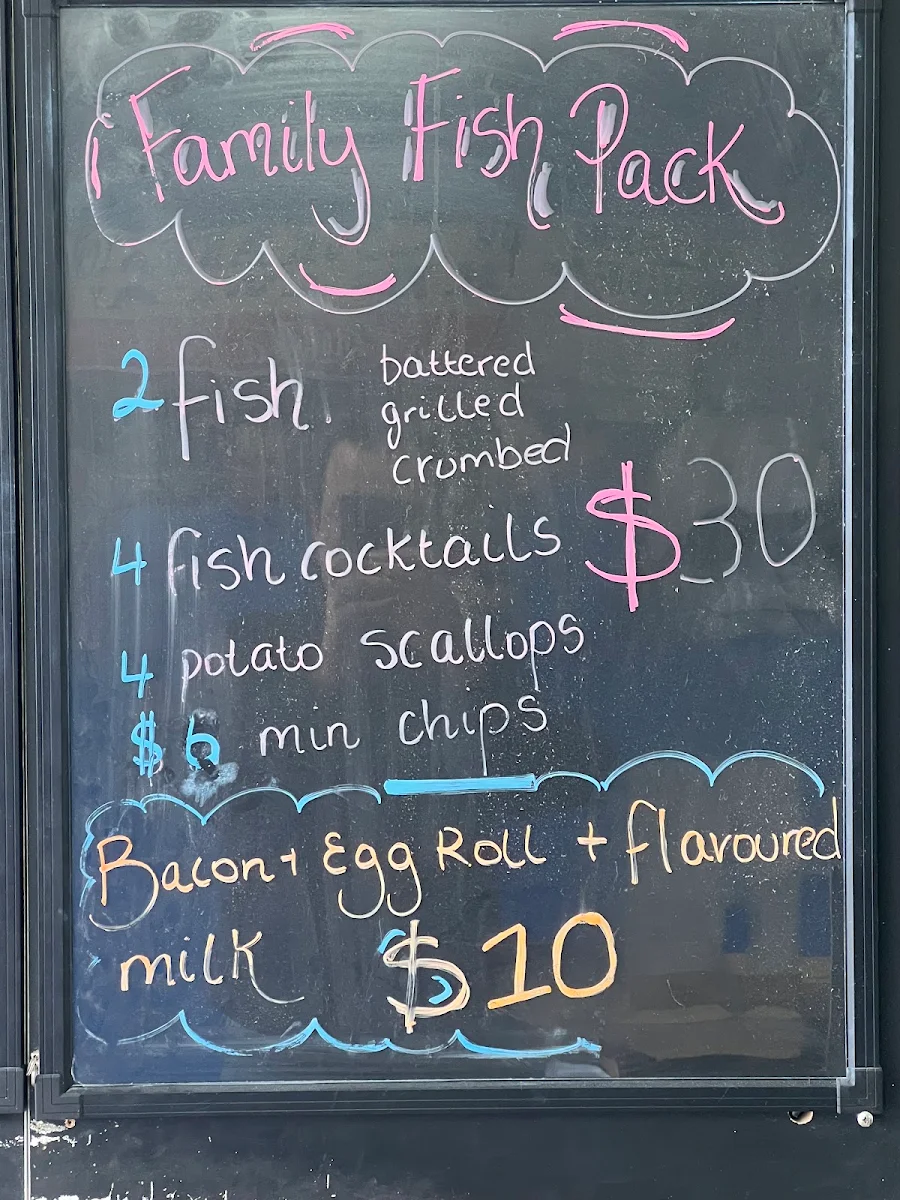 Family Fish Pack
2 fish.
battered
grilled
crumbed
$30
4 fish cocktails
4 potato scallops
$6 min chips
Bacon + Egg Roll + flavoured
milk $10